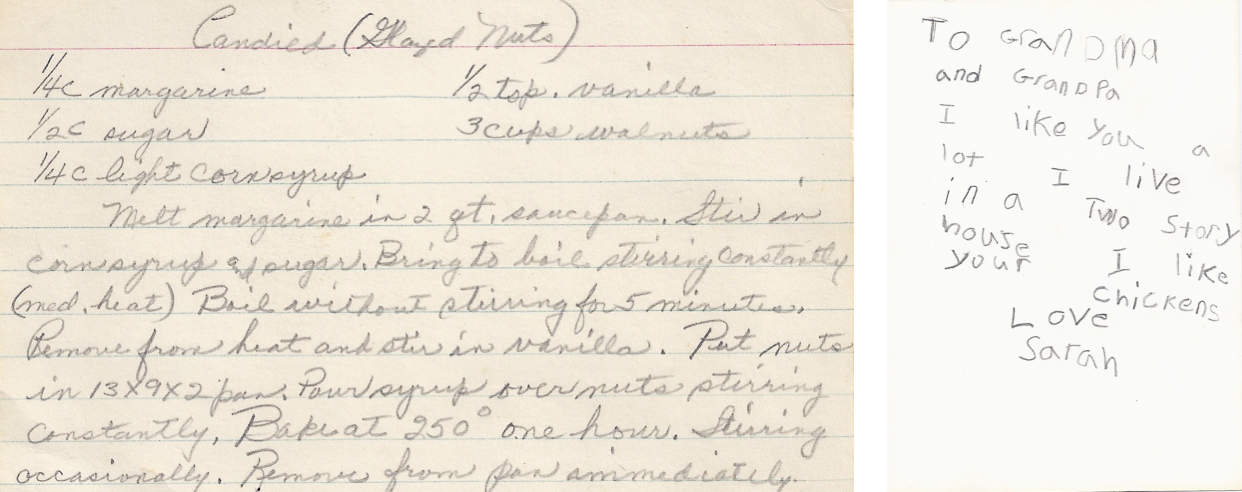 Candied (Glazed Nuts)
1/4c margarine 1/2 tsp. vanilla
1/2c sugar 3 cups walnuts
1/4c light corn syrup
Melt margarine in 2 qt. saucepan. Stir in
corn syrup and sugar. Bring to boil stirring constantly
(med. heat) Boil without stirring for 5 minutes.
Remove from heat and stir in vanilla. Put nuts
in 13x9x2 pan. Pour syrup over nuts stirring
constantly. Bake at 250° one hour. Stirring
occasionally. Remove from pan ammediately.
To Grandma
and Grandpa
I like you a
lot I live
in a Two story
house I like
your chickens
Love
Sarah